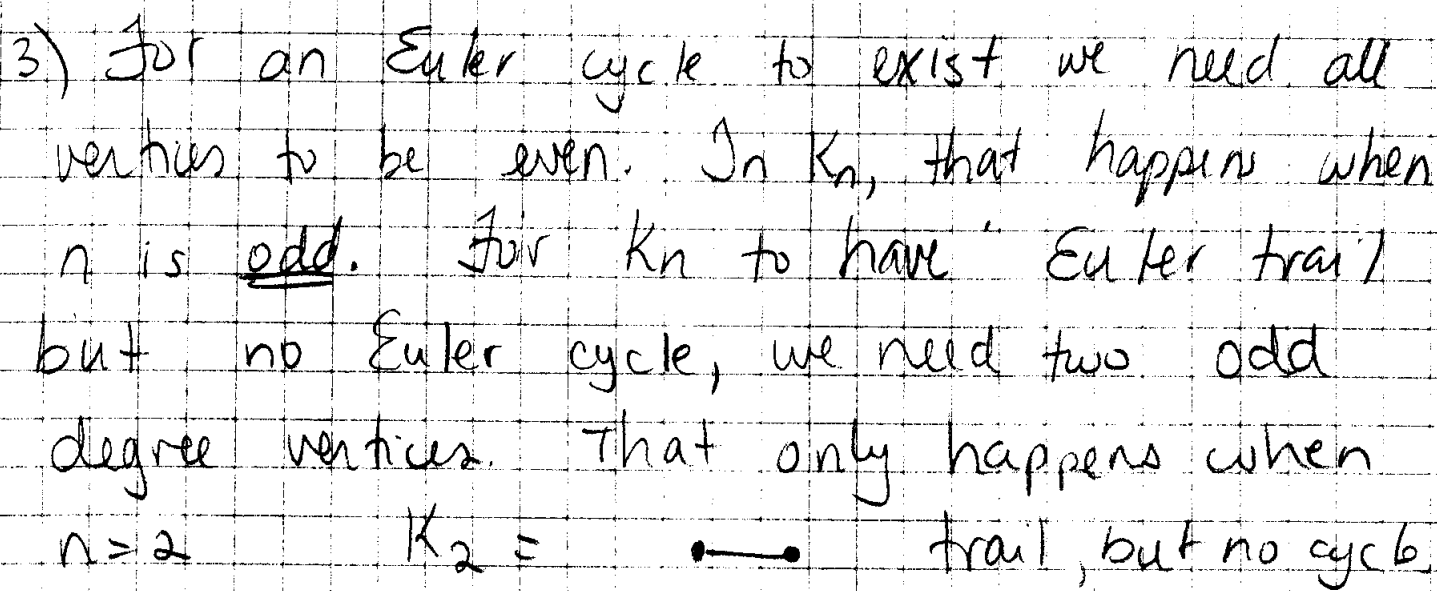 3) For an Euler cycle to exist we need all
vertices to be even. In Kn, that happens when
n is odd. For Kn to have Euler trail
but no Euler cycle, we need two odd
degree vertices. That only happens when
n=2 K2 = trail, but no cycle.